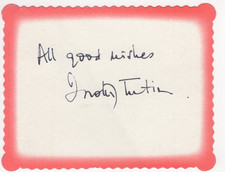 All good wishes
Dorothy Tutin